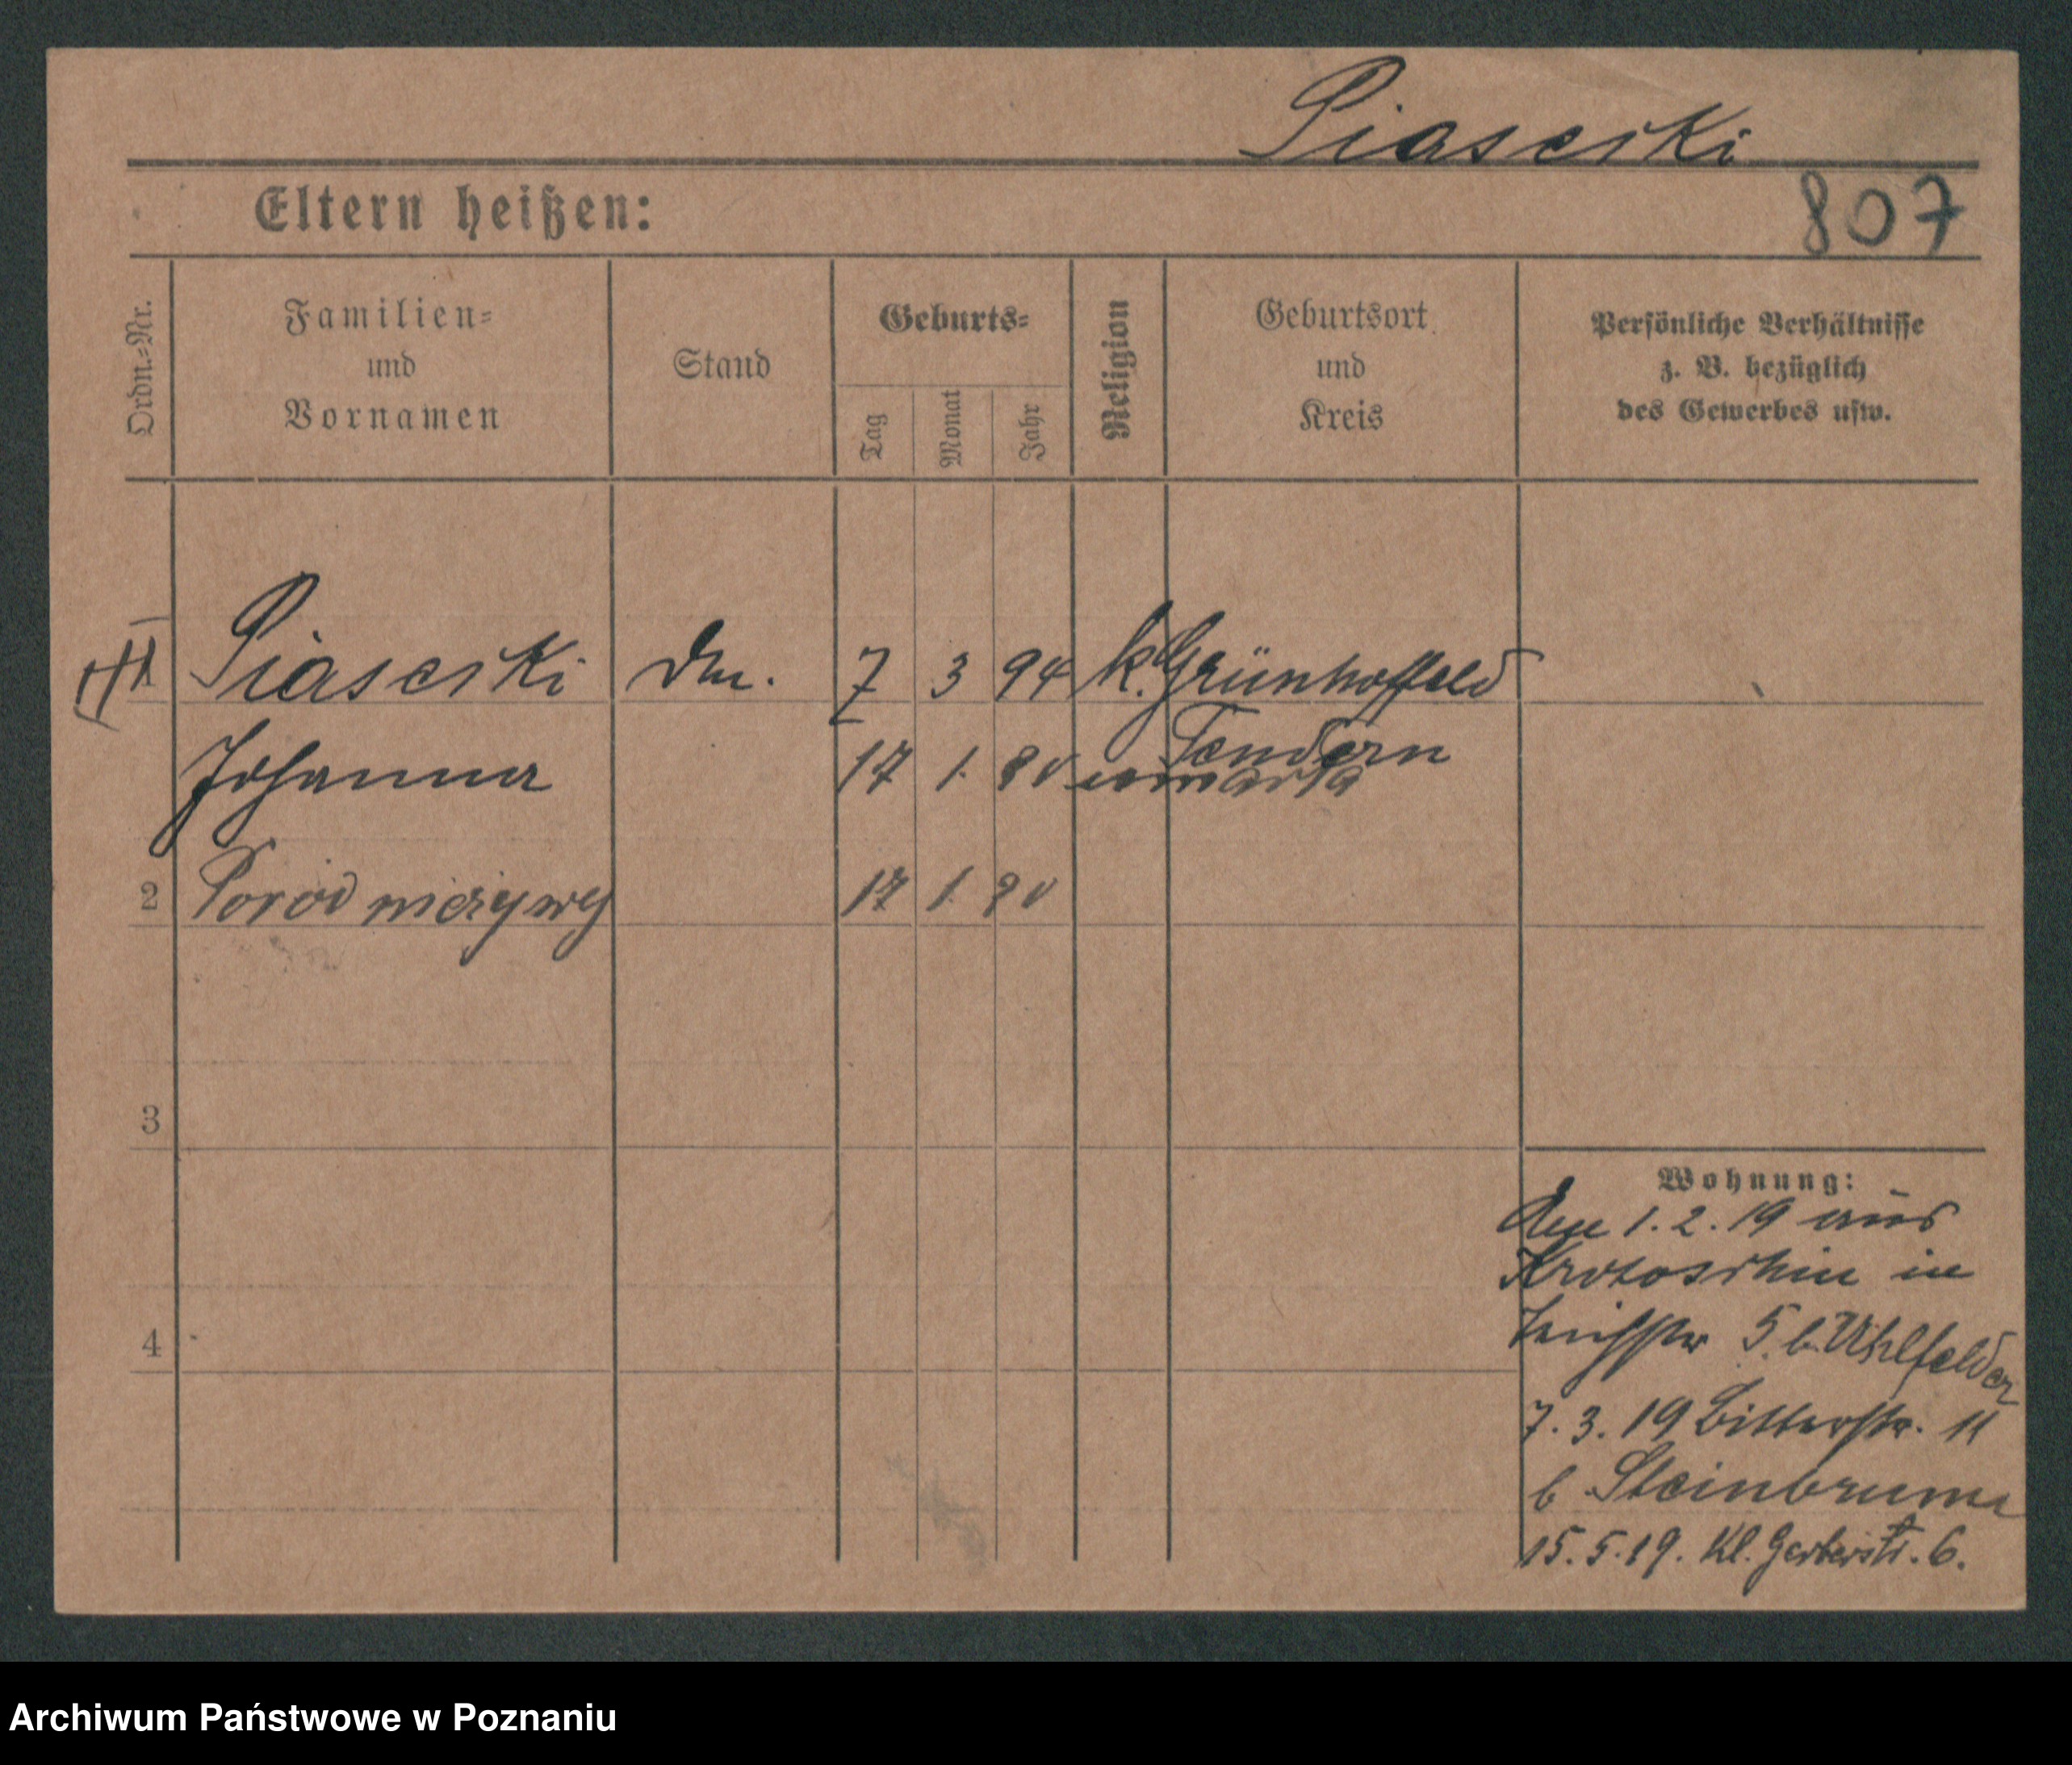 Piasecki
Eltern heißen:
807
Ordn.-Nr.
Familien-
und
Vornamen
Stand
Geburts-
Tag
Monat
Jahr
Religion
Geburtsort
und
Kreis
Persönliche Verhältnisse
z. B. bezüglich
des Gewerbes usw.
Piasecki 7 3 94 k. Grünhoffeld
Johanna 17 1. 20 umarła
2 Poród nieżywy 17 1. 20
3
Wohnung:
1. 2. 19 aus
Krotoschin in
4
5 b. Uhlfelder
7. 3. 19 Bitterstr. 11
b Steinbrunn
15. 5. 19. Kl. Gerberstr. 6.
Archiwum Państwowe w Poznaniu